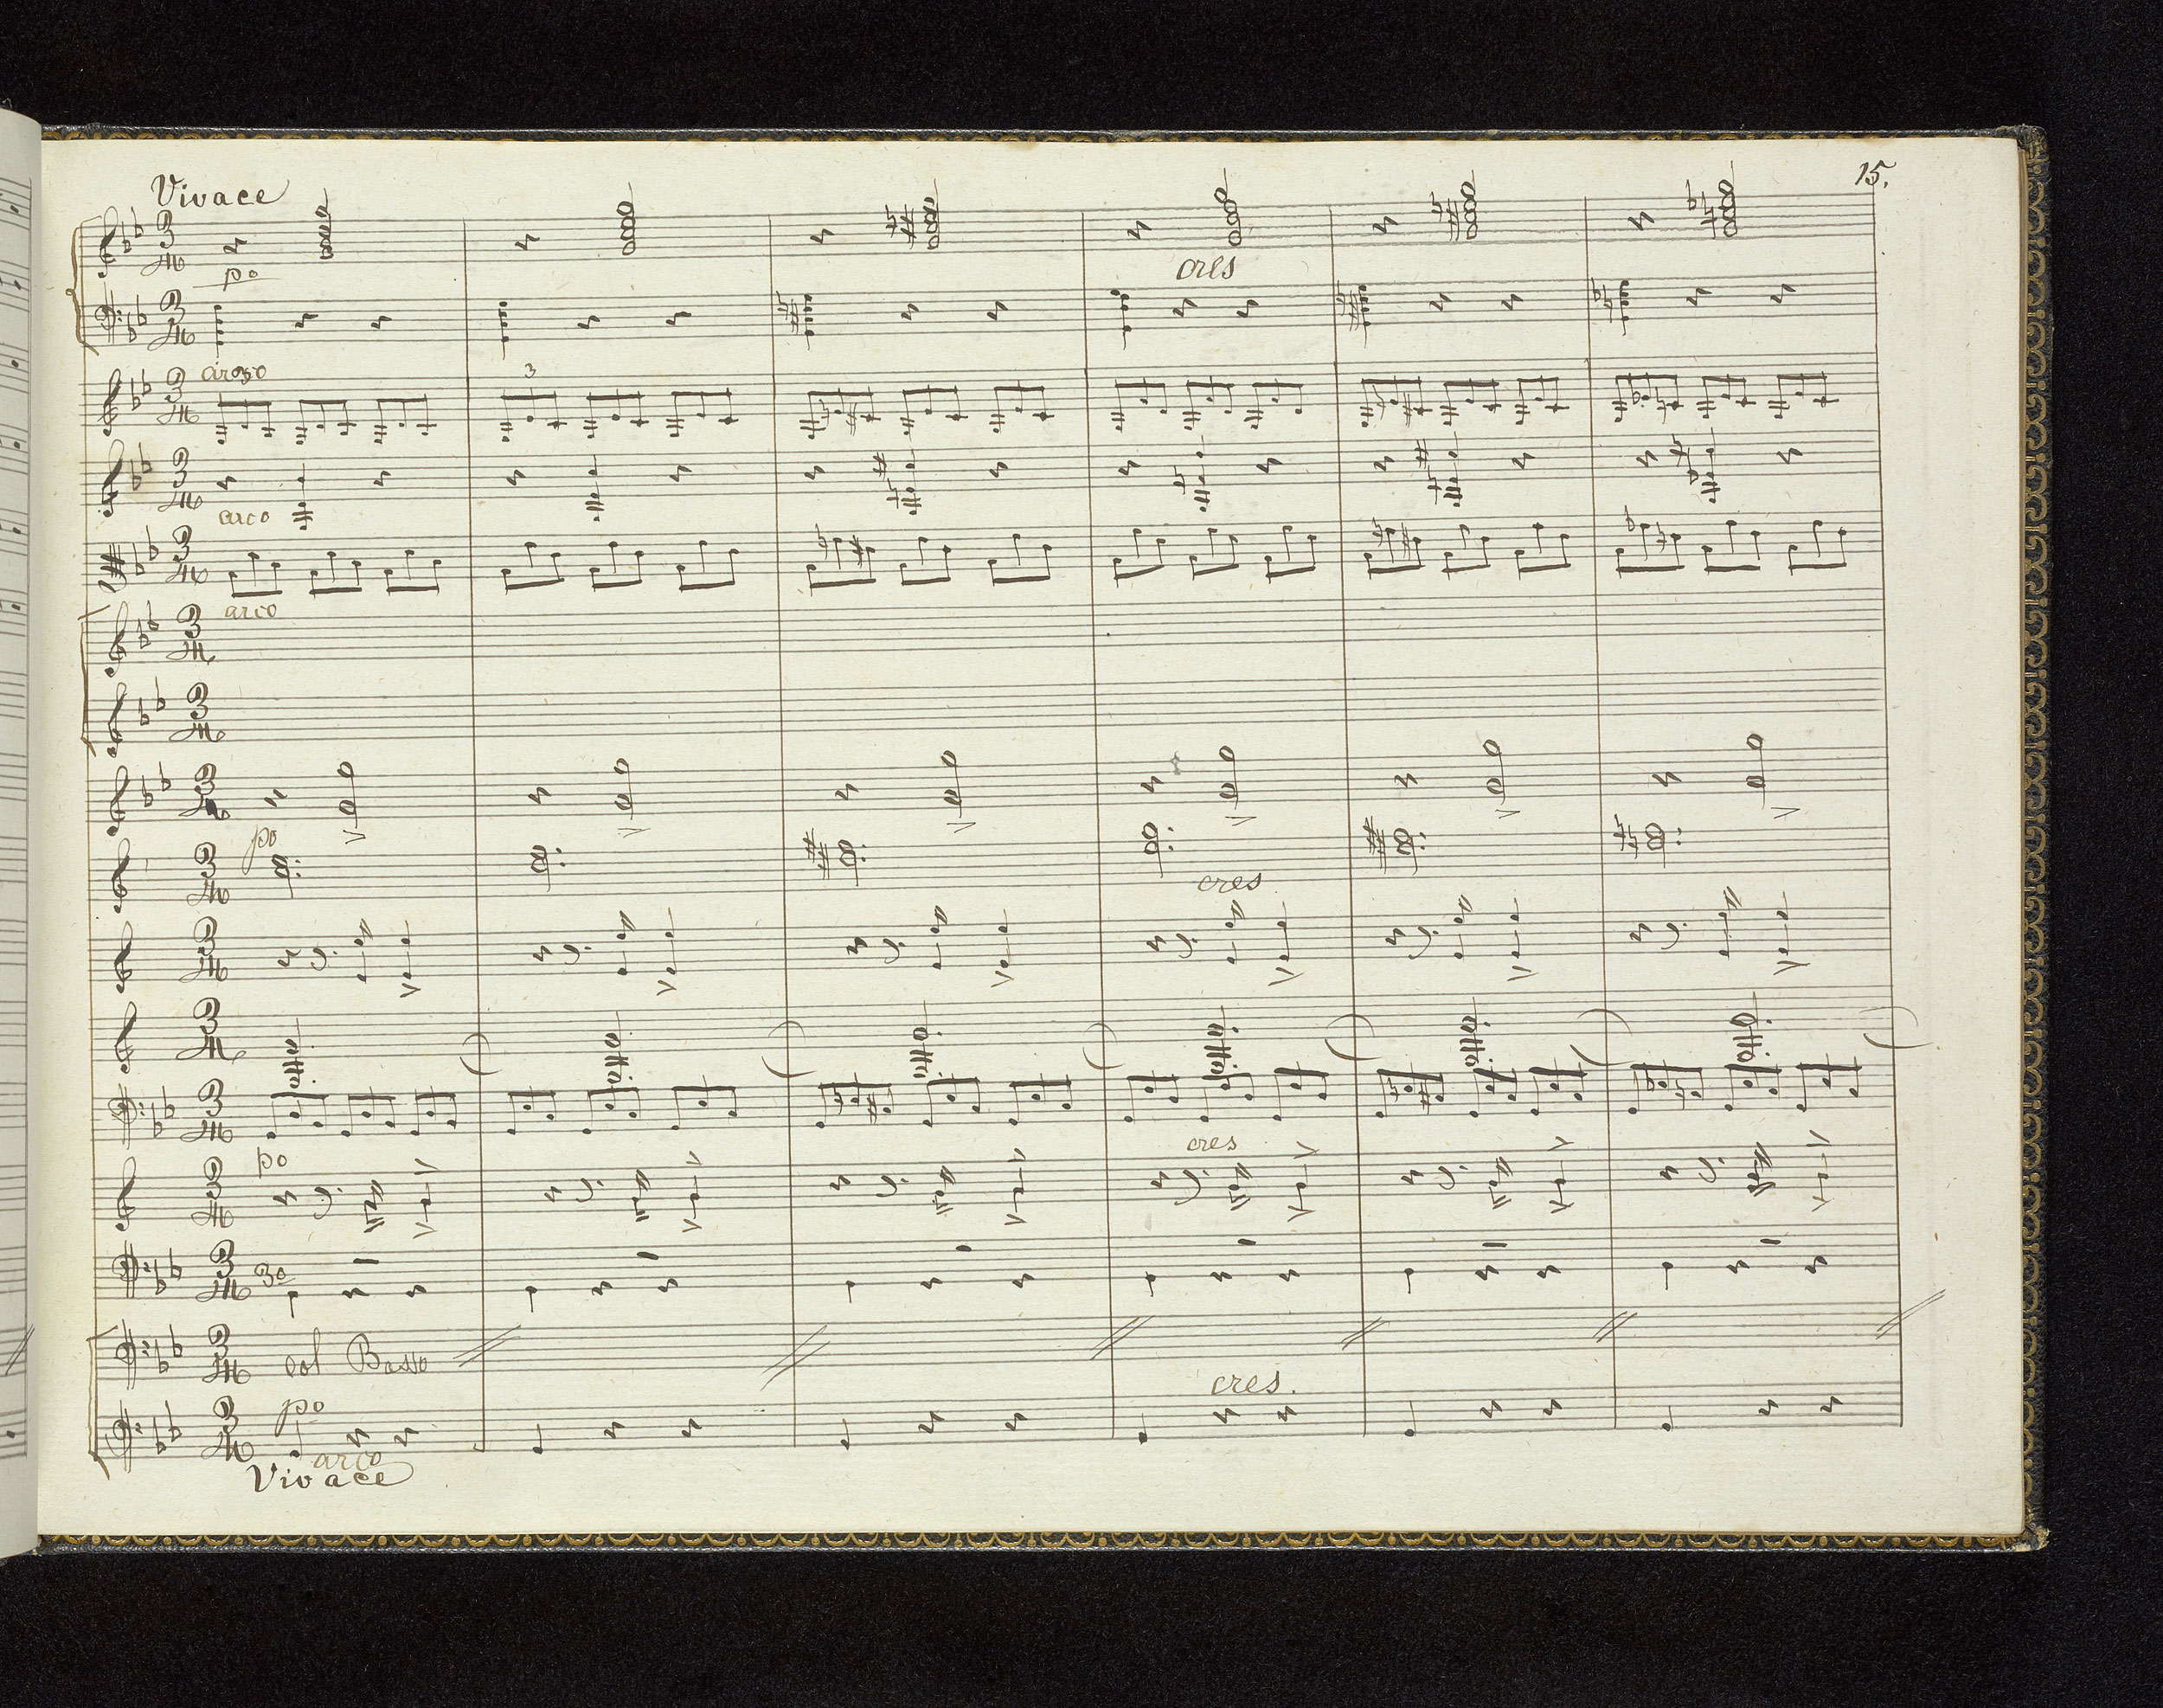 15.
Vivace
po
cres
arco
3
arco
arco
po
cres
po
cres
3o
col Basso
cres.
po
arco
Vivace